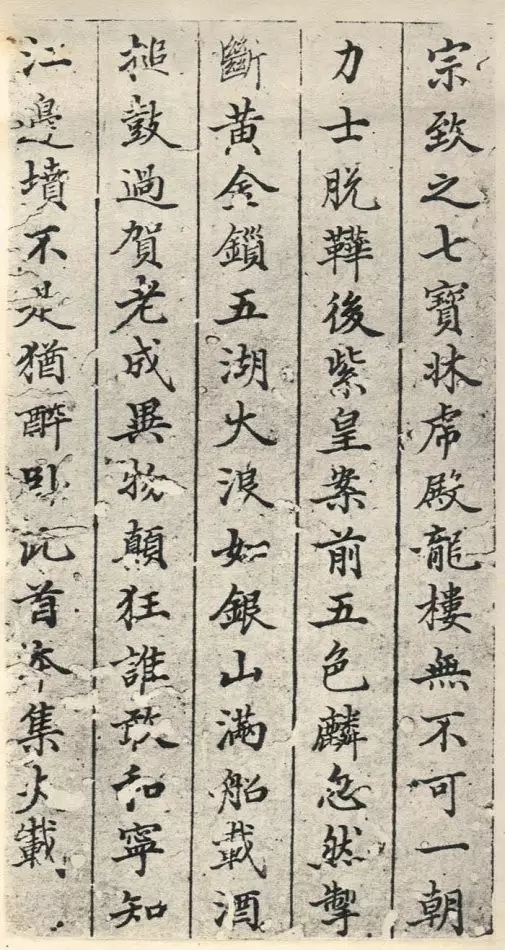 宗致之七寶牀虎殿龍樓無不可一朝
力士脫鞾後紫皇案前五色麟忽然掣
斷黃金鎖五湖大浪如銀山滿船載酒
搥鼓過賀老成異物顛狂誰敢和寧知
江邊墳不是猶醉卧此首本集失載